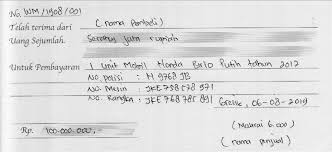 No. WM/1908/001
Telah terima dari (nama Pembeli)
Uang Sejumlah. Seratus juta rupiah
Untuk Pembayaran 1 Unit Mobil Honda Brio Putih tahun 2012
No. polisi : N 9768 JB
No. Mesin : JKE 738578 971
No. Rangka : JKE 768785 891
Gresik, 06-08-2019
(Materai 6.000)
Rp. 100.000.000,-
(nama penjual)